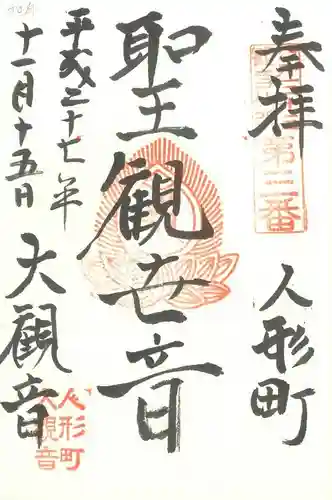 奉拝
第三番
人形町
聖観世音
平成二十七年
十一月十五日
大観音
人形町
大観音